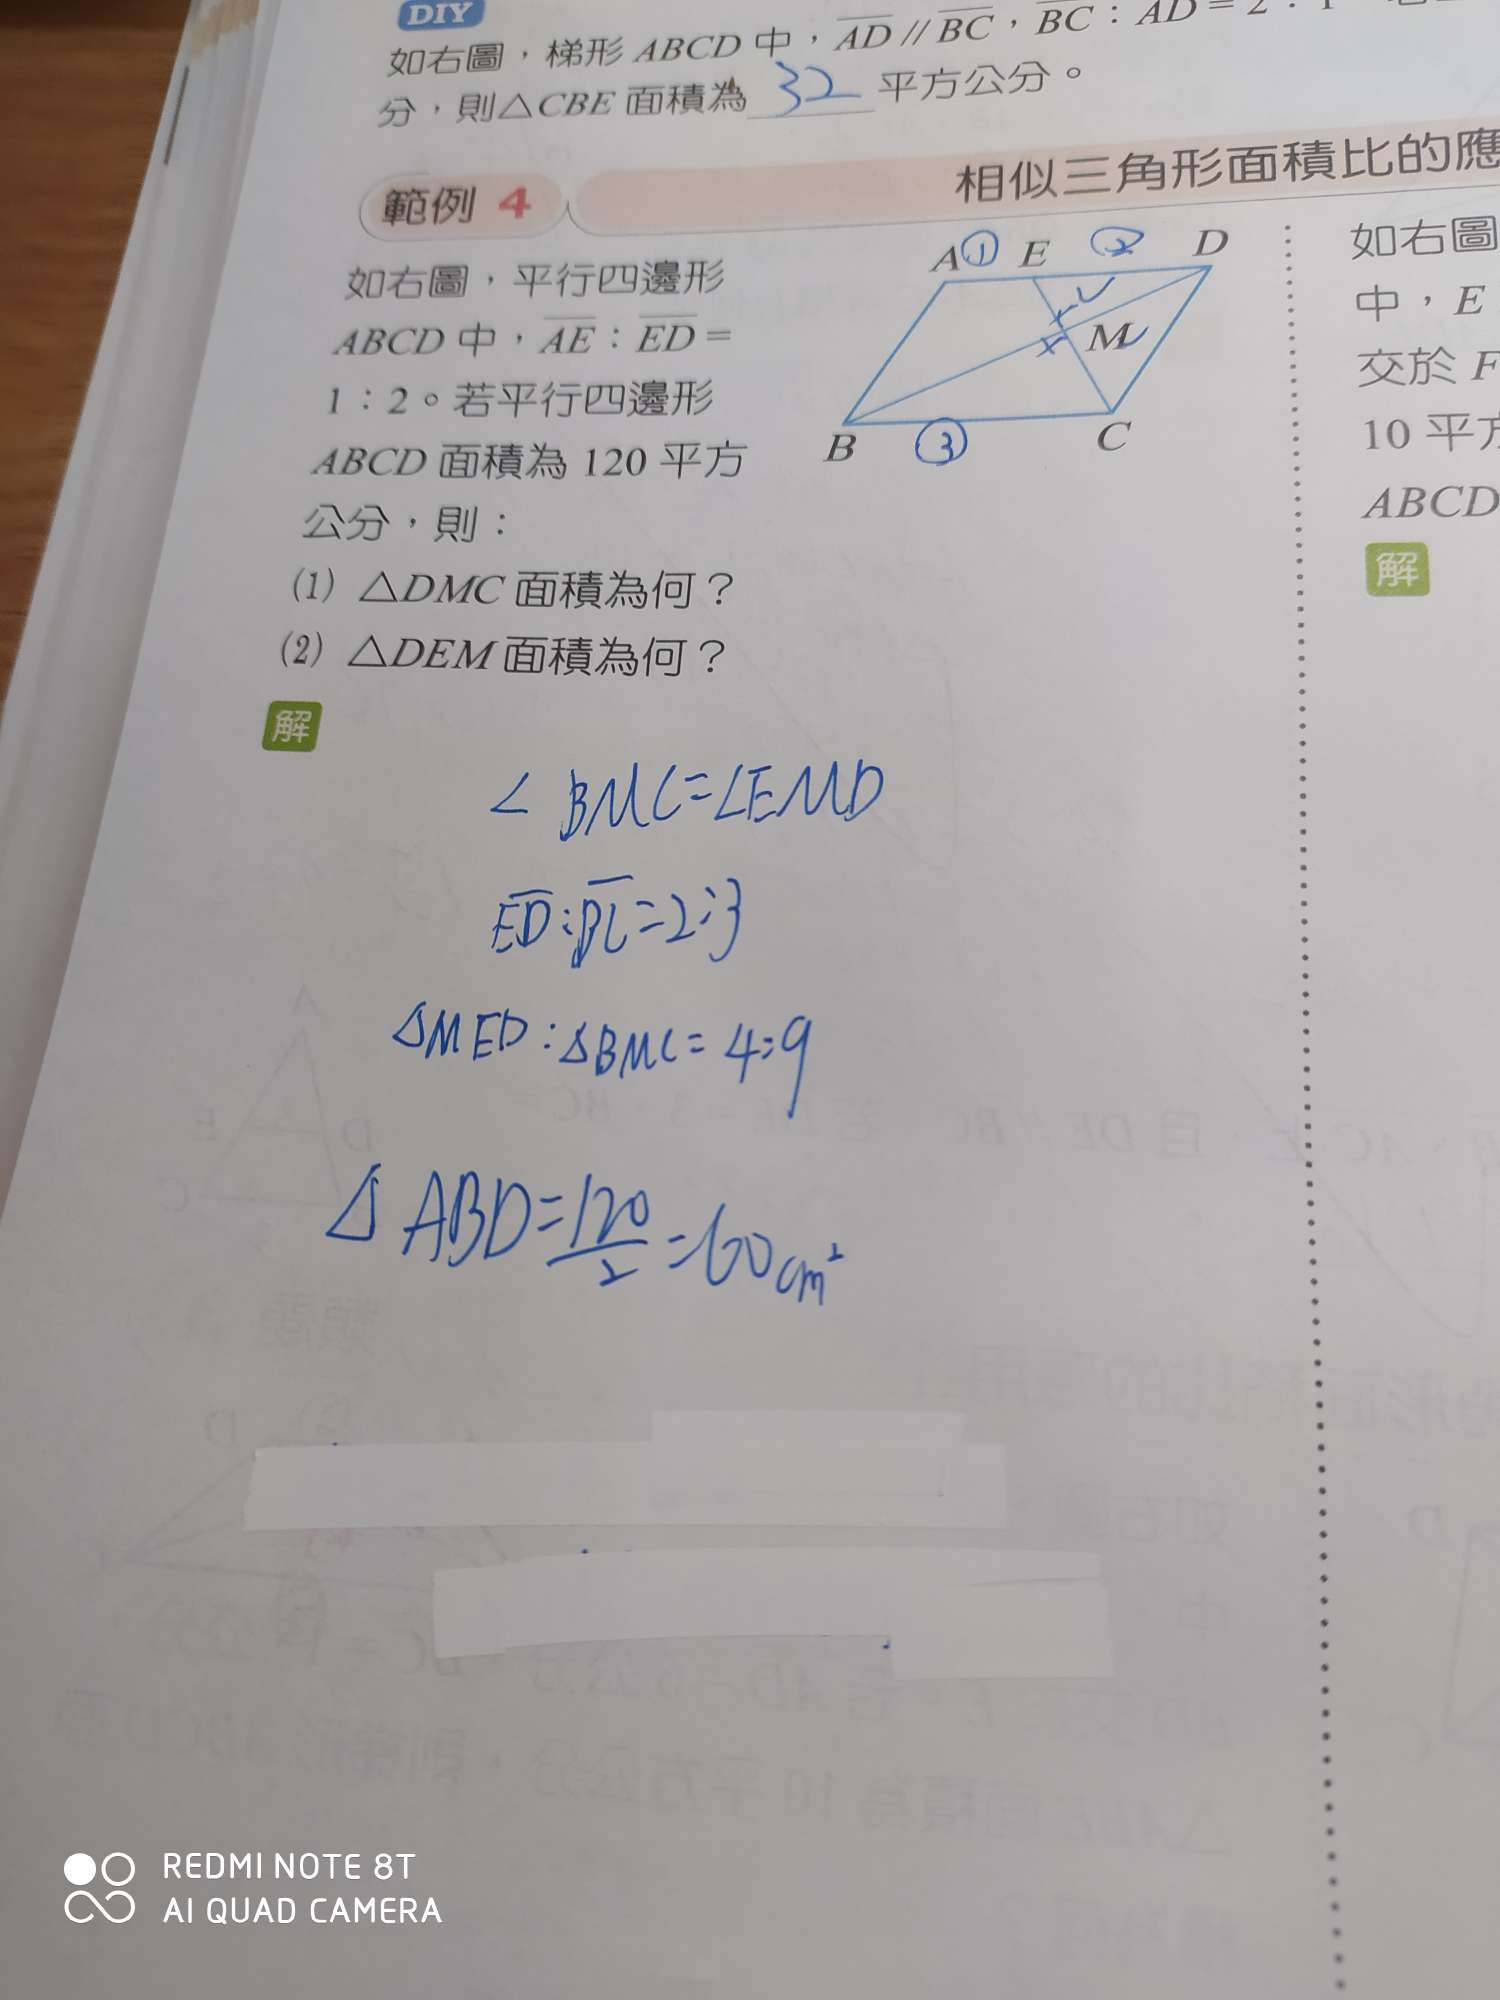 DIY
如右圖，梯形 ABCD 中，AD // BC，BC：AD = 2：1
分，則△CBE 面積為 32 平方公分。
範例 4
相似三角形面積比的應
如右圖，平行四邊形
ABCD 中，AE：ED =
1：2。若平行四邊形
ABCD 面積為 120 平方
公分，則：
(1) △DMC 面積為何？
(2) △DEM 面積為何？
A ① E ② D
M
B ③ C
解
∠BMC=∠EMD
ED:BC=2:3
△MED:△BMC=4:9
△ABD=120/2=60cm²
如右圖
中，E
交於 F
10 平方
ABCD
解
REDMI NOTE 8T
AI QUAD CAMERA